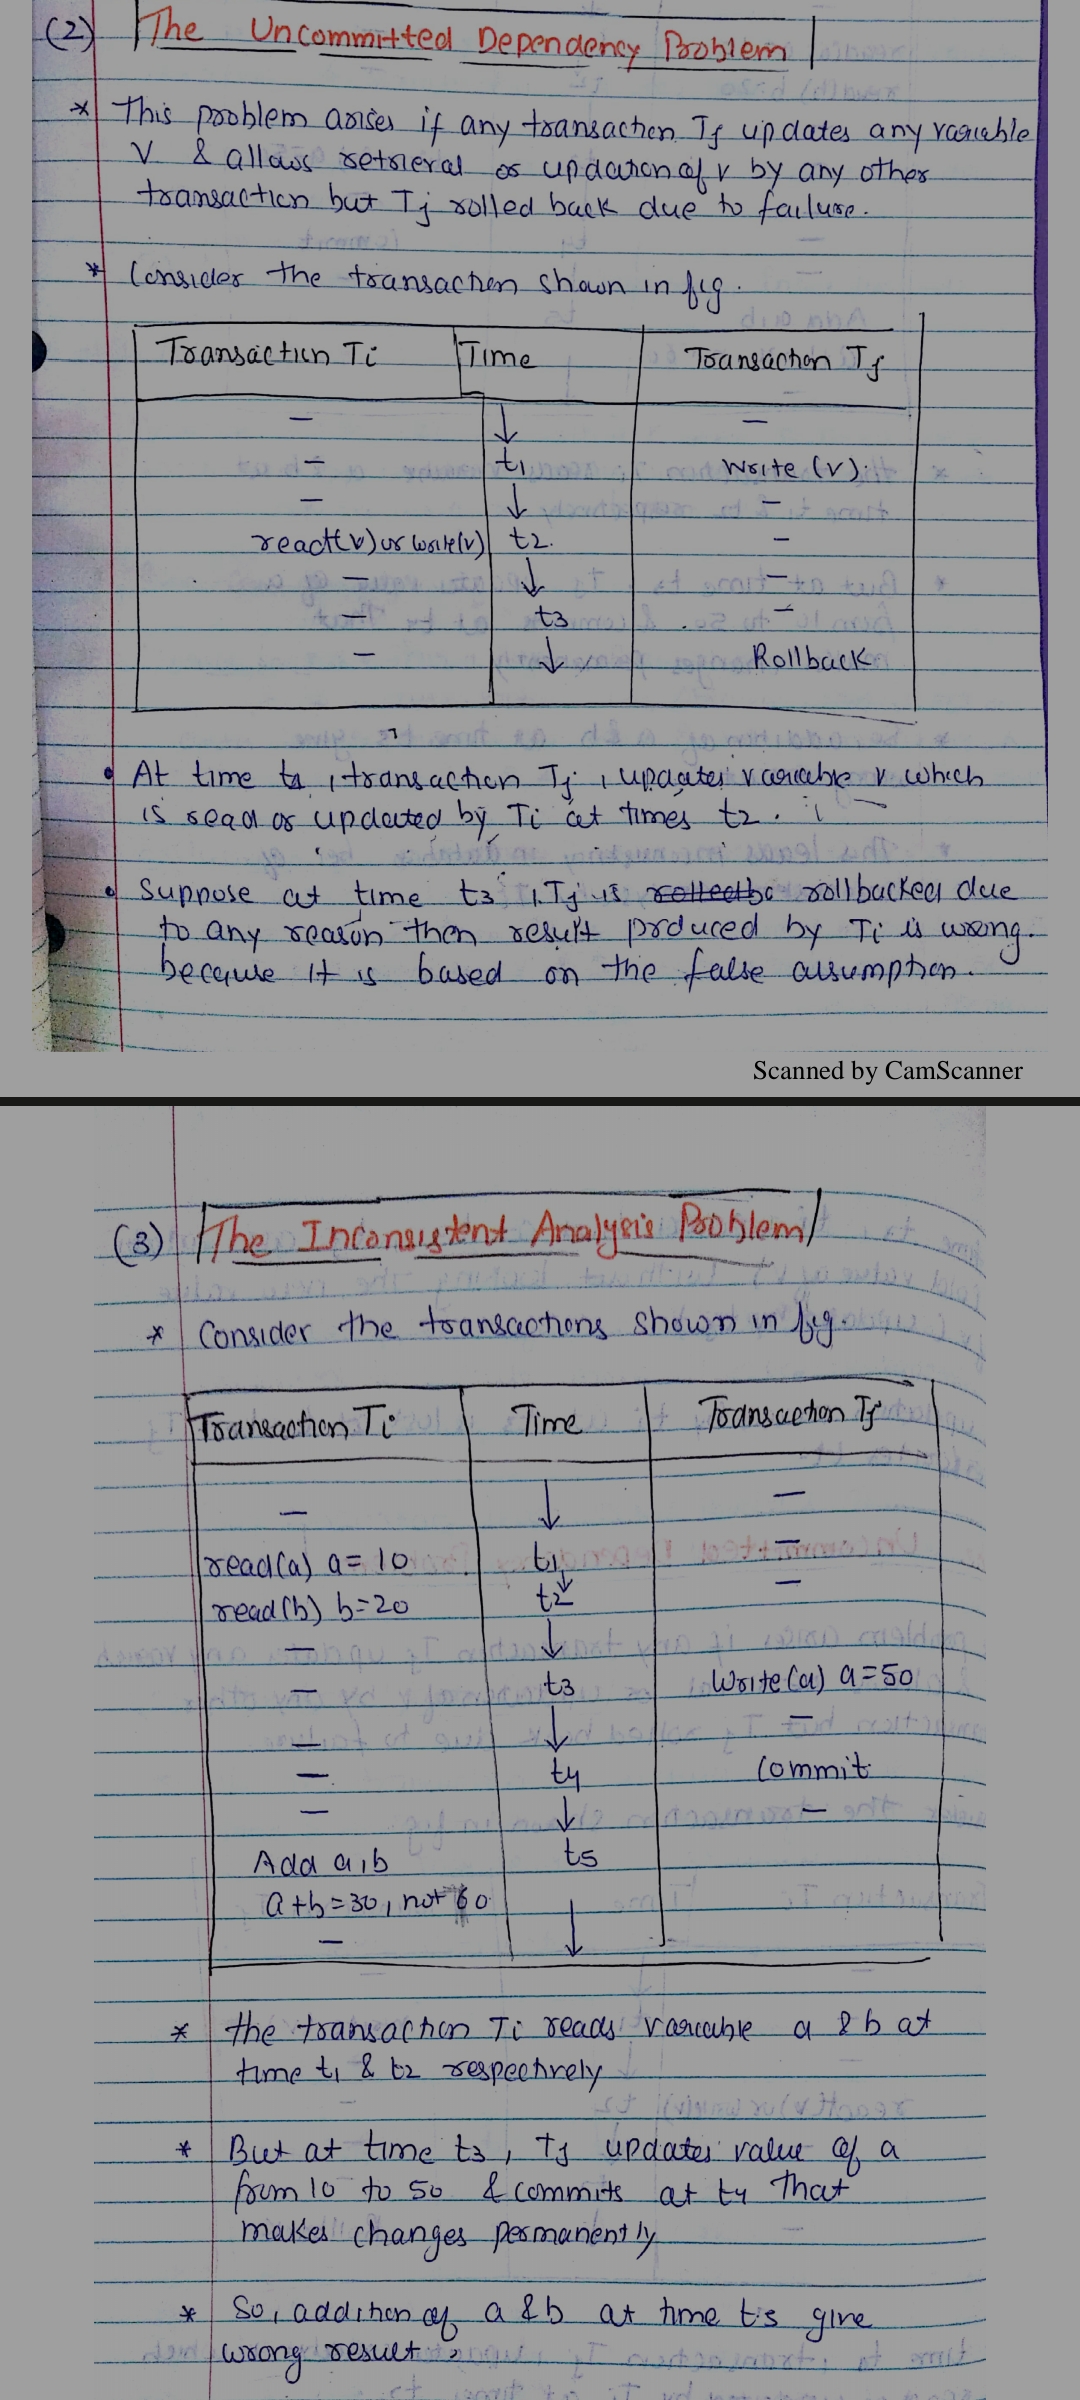 (2) The Uncommitted Dependency Problem
* This problem arises if any transaction Tj updates any variable
V & allows retrieval or updation of v by any other
transaction but Tj rolled back due to failure.
* Consider the transaction shown in fig.
Transaction Ti Time Transaction Tj
— —
— t1 Write (v)
— —
read(v) or write(v) t2. —
— —
— t3 —
— Rollback
• At time t1, transaction Tj, updates variable v which
is read or updated by Ti at times t2.
• Suppose at time t3, Tj is rollbacked due
to any reason then result produced by Ti is wrong.
because it is based on the false assumption.
Scanned by CamScanner
(3) The Inconsistent Analysis Problem
* Consider the transactions shown in fig.
Transaction Ti Time Transaction Tj
— —
read(a) a=10 t1 —
read(b) b=20 t2 —
—
— t3 Write(a) a=50
— —
— t4 Commit
— —
Add a,b t5
a+b=30, not 60
—
* the transaction Ti reads variable a & b at
time t1 & t2 respectively
* But at time t3, Tj updates value of a
from 10 to 50 & commits at t4 That
makes changes permanently
* So, addition of a & b at time t5 give
wrong result.